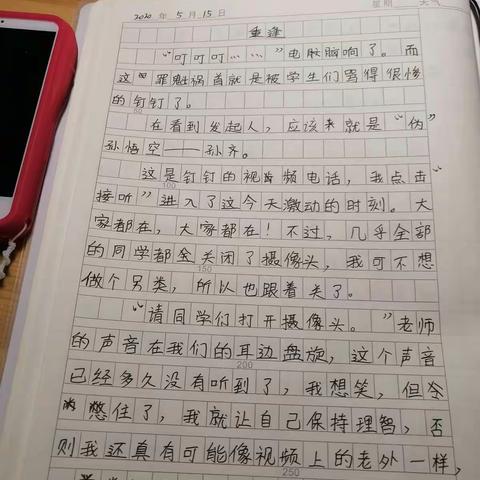 2020 年 5 月 15 日 星期 天气
重逢
“叮叮叮……”电脑响了。而
这罪魁祸首就是被学生们骂得很惨
的钉钉了。
50
在看到发起人，应该就是“伪”
孙悟空——孙齐。
这是钉钉的视音频电话，我点击“
100
接听”进入了这今天激动的时刻。大
家都在，大家都在！不过，几乎全部
的同学都全关闭了摄像头，我可不想
150
做个另类，所以也跟着关了。
“请同学们打开摄像头。”老师
的声音在我们的耳边盘旋，这个声音
200
已经多久没有听到了，我想笑，但全
憋住了，我就让自己保持理智，否
则我还真有可能像视频上的老外一样，
250